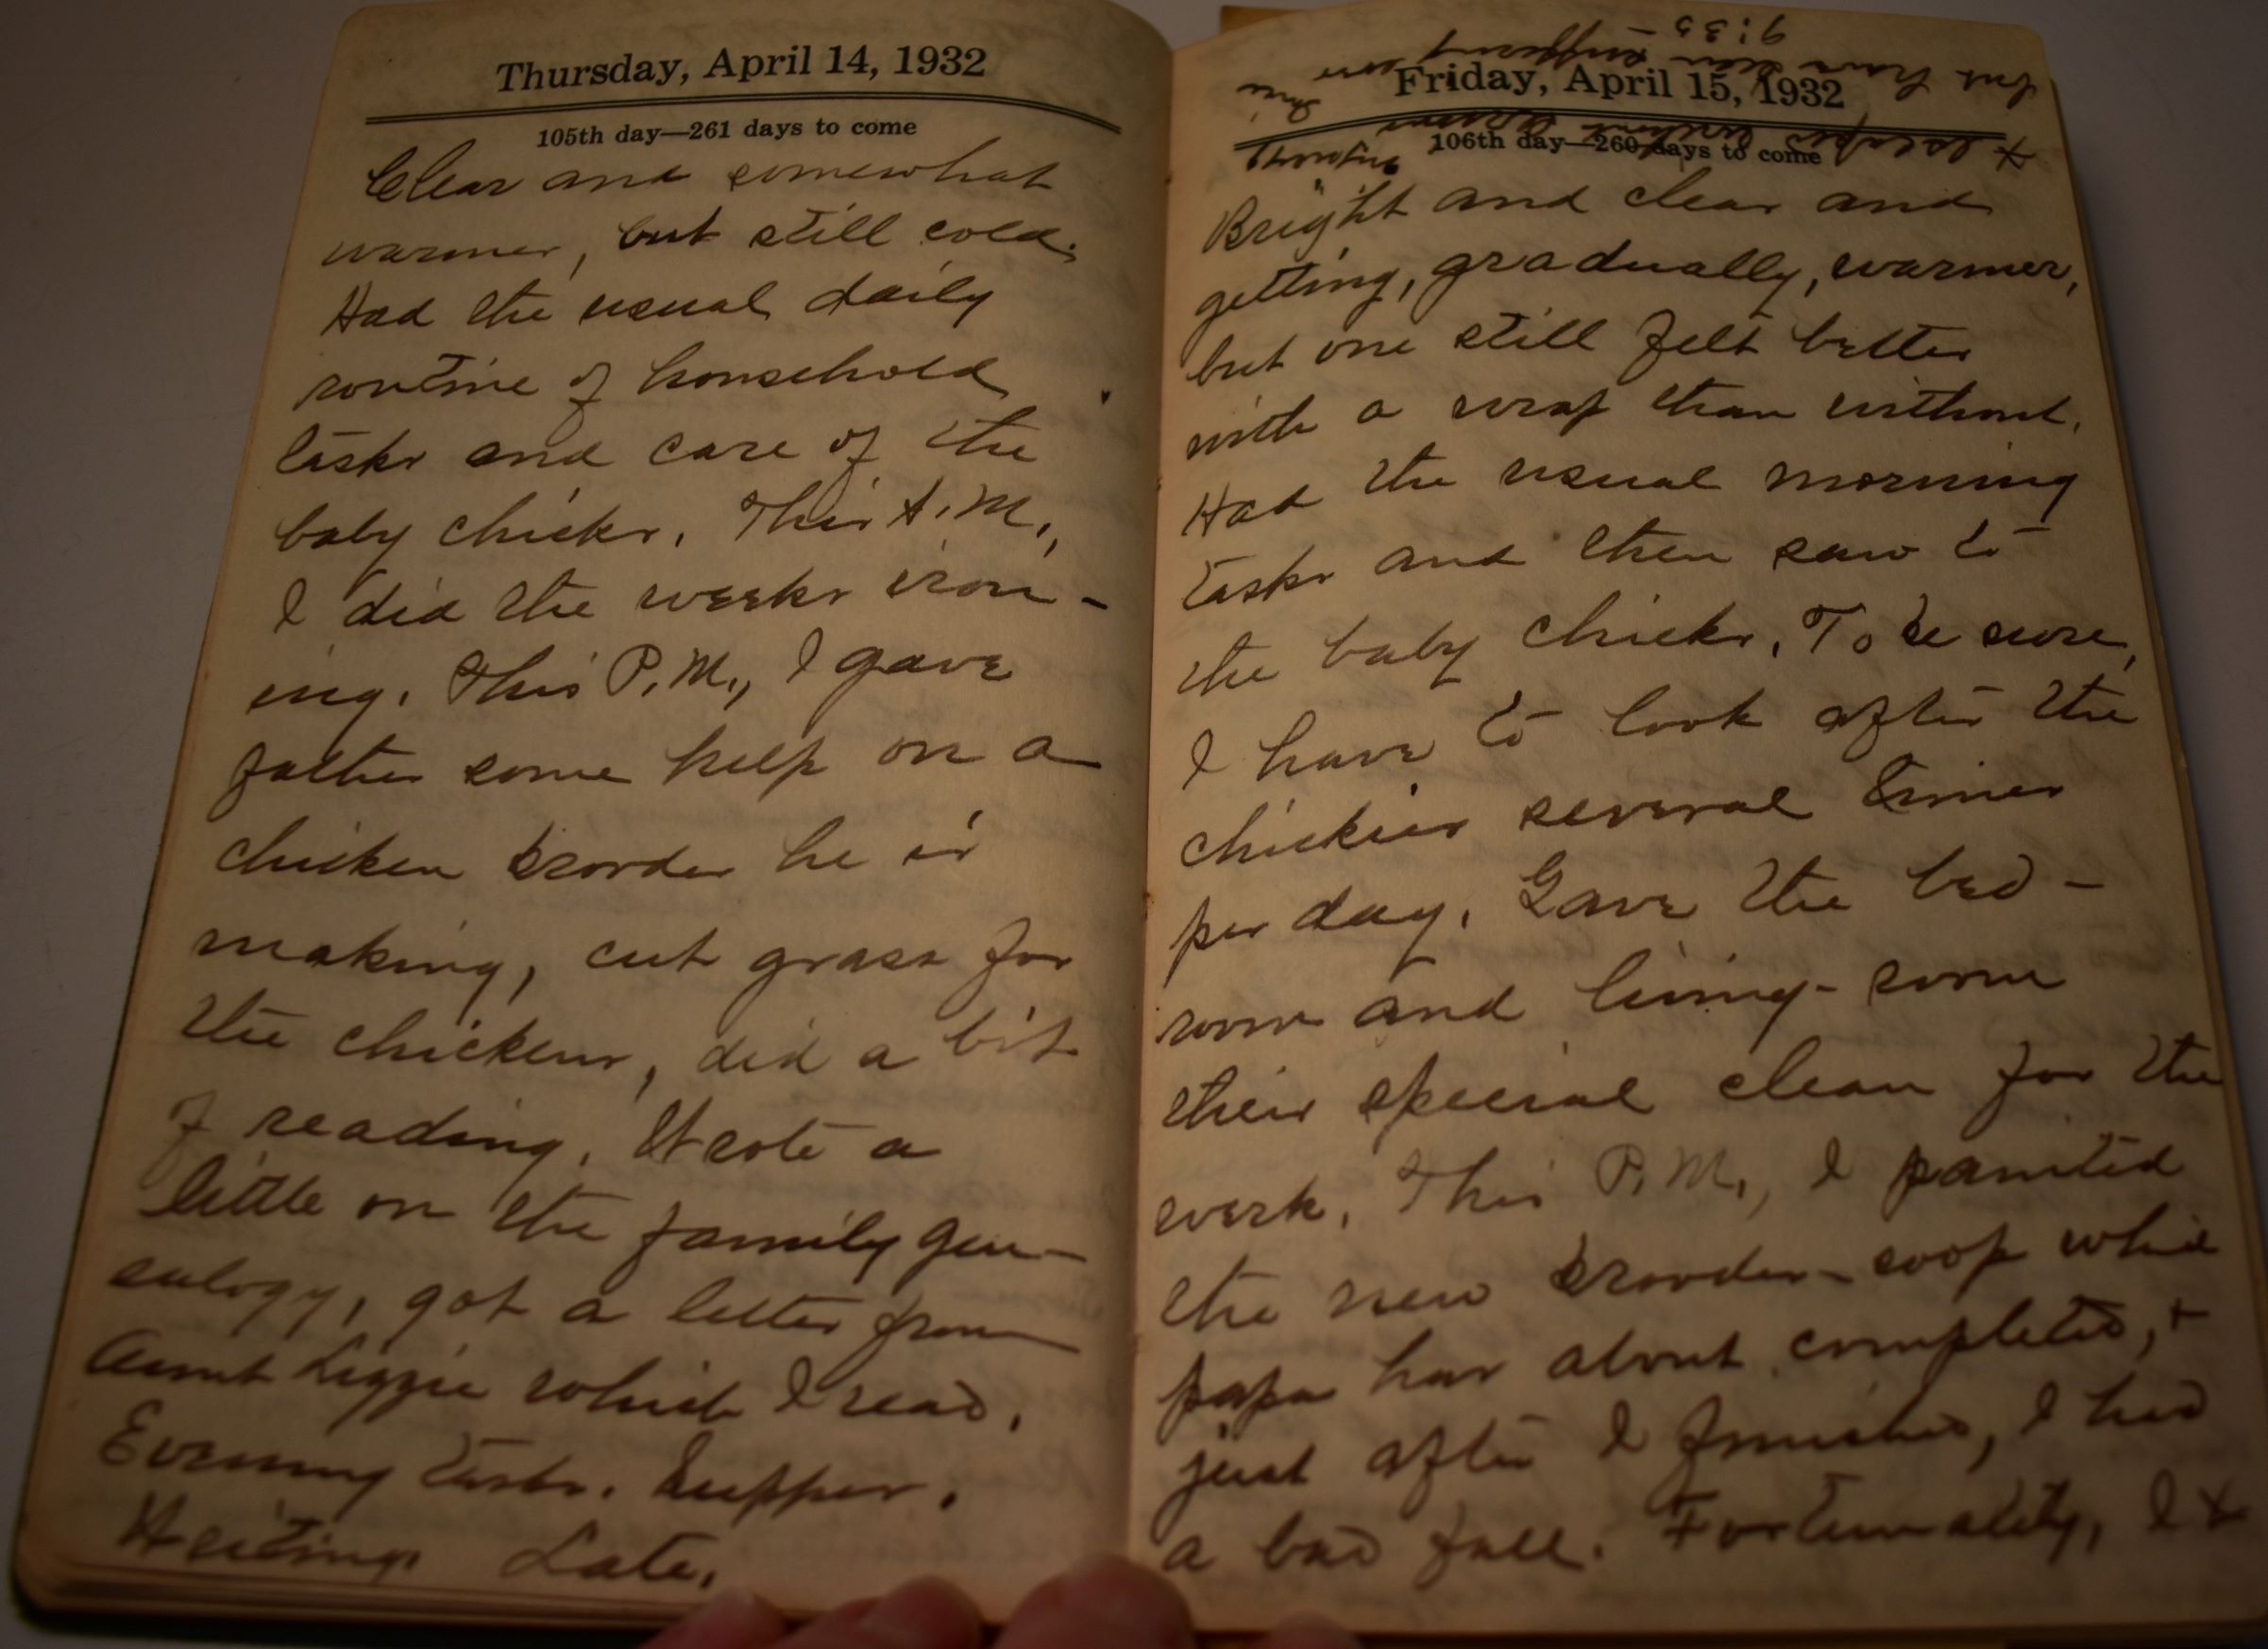 Thursday, April 14, 1932
105th day—261 days to come
Clear and somewhat
warmer, but still cold.
Had the usual daily
routine of household
tasks and care of the
baby chicks. This A.M.,
I did the weeks iron-
ing. This P.M., I gave
father some help on a
chicken brooder he is
making, cut grass for
the chickens, did a bit
of reading. Wrote a
little on the family gen-
ealogy, got a letter from
Aunt Lizzie which I read.
Evening tasks. Supper.
Writing. Late.
Friday, April 15, 1932
106th day—260 days to come
Bright and clear and
getting, gradually, warmer,
but one still felt better
with a wrap than without.
Had the usual morning
tasks and then saw to
the baby chicks. To be sure,
I have to look after the
chickies several times
per day. Gave the bed-
room and living-room
their special clean for the
week. This P.M., I painted
the new brooder-coop which
papa has about completed, +
just after I finished, I had
a bad fall. Fortunately, I x
x escaped without
but have been suffering
9:35 -